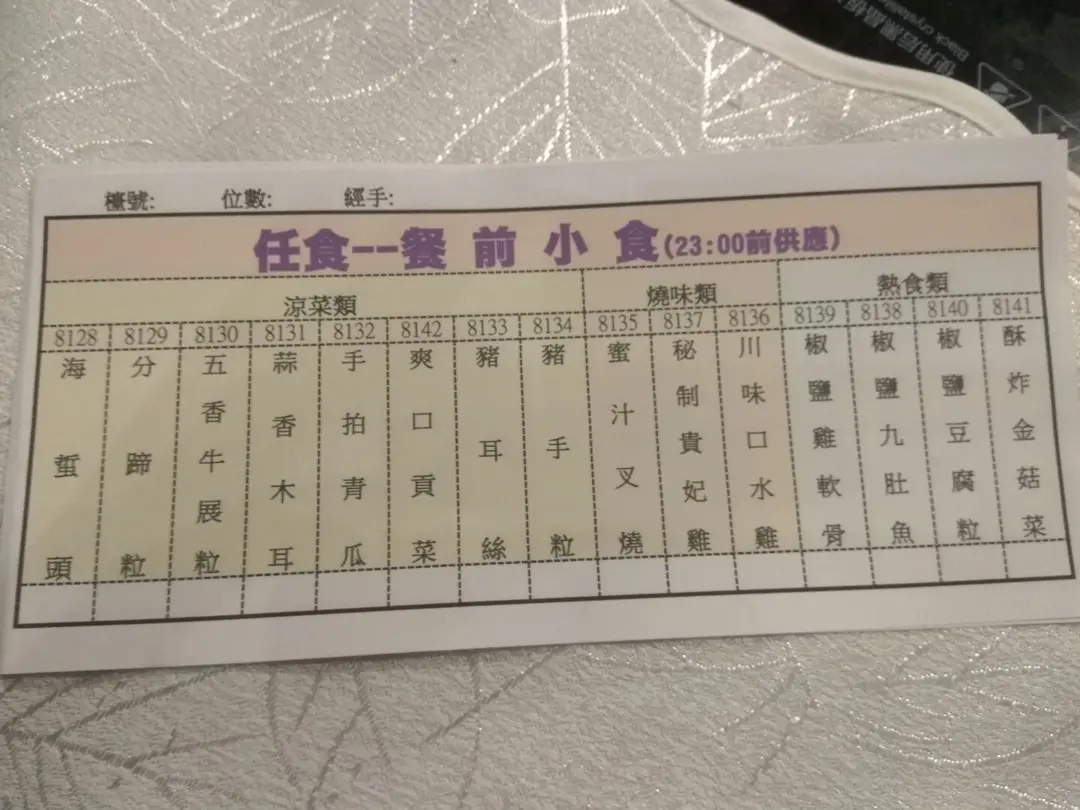 使用后黑晶板
Black crystal
檯號: 位數: 經手:
任食--餐前小食(23:00前供應)
涼菜類 燒味類 熱食類
8128 8129 8130 8131 8132 8142 8133 8134 8135 8137 8136 8139 8138 8140 8141
海蜇頭
分蹄粒
五香牛展粒
蒜香木耳
手拍青瓜
爽口貢菜
豬耳絲
豬手粒
蜜汁叉燒
秘制貴妃雞
川味口水雞
椒鹽雞軟骨
椒鹽九肚魚
椒鹽豆腐粒
酥炸金菇菜